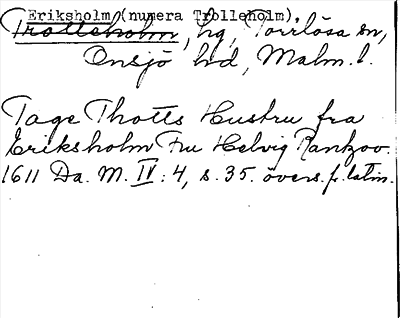 Eriksholm (numera Trolleholm)
Trolleholm, hg, Torrlösa sn,
Onsjö hd, Malm. l.
Tage Thotts Hustru fra
Eriksholm Fru Helvig Rantzov.
1611 Da. M. IV: 4, s. 35. övers. fr. latin.